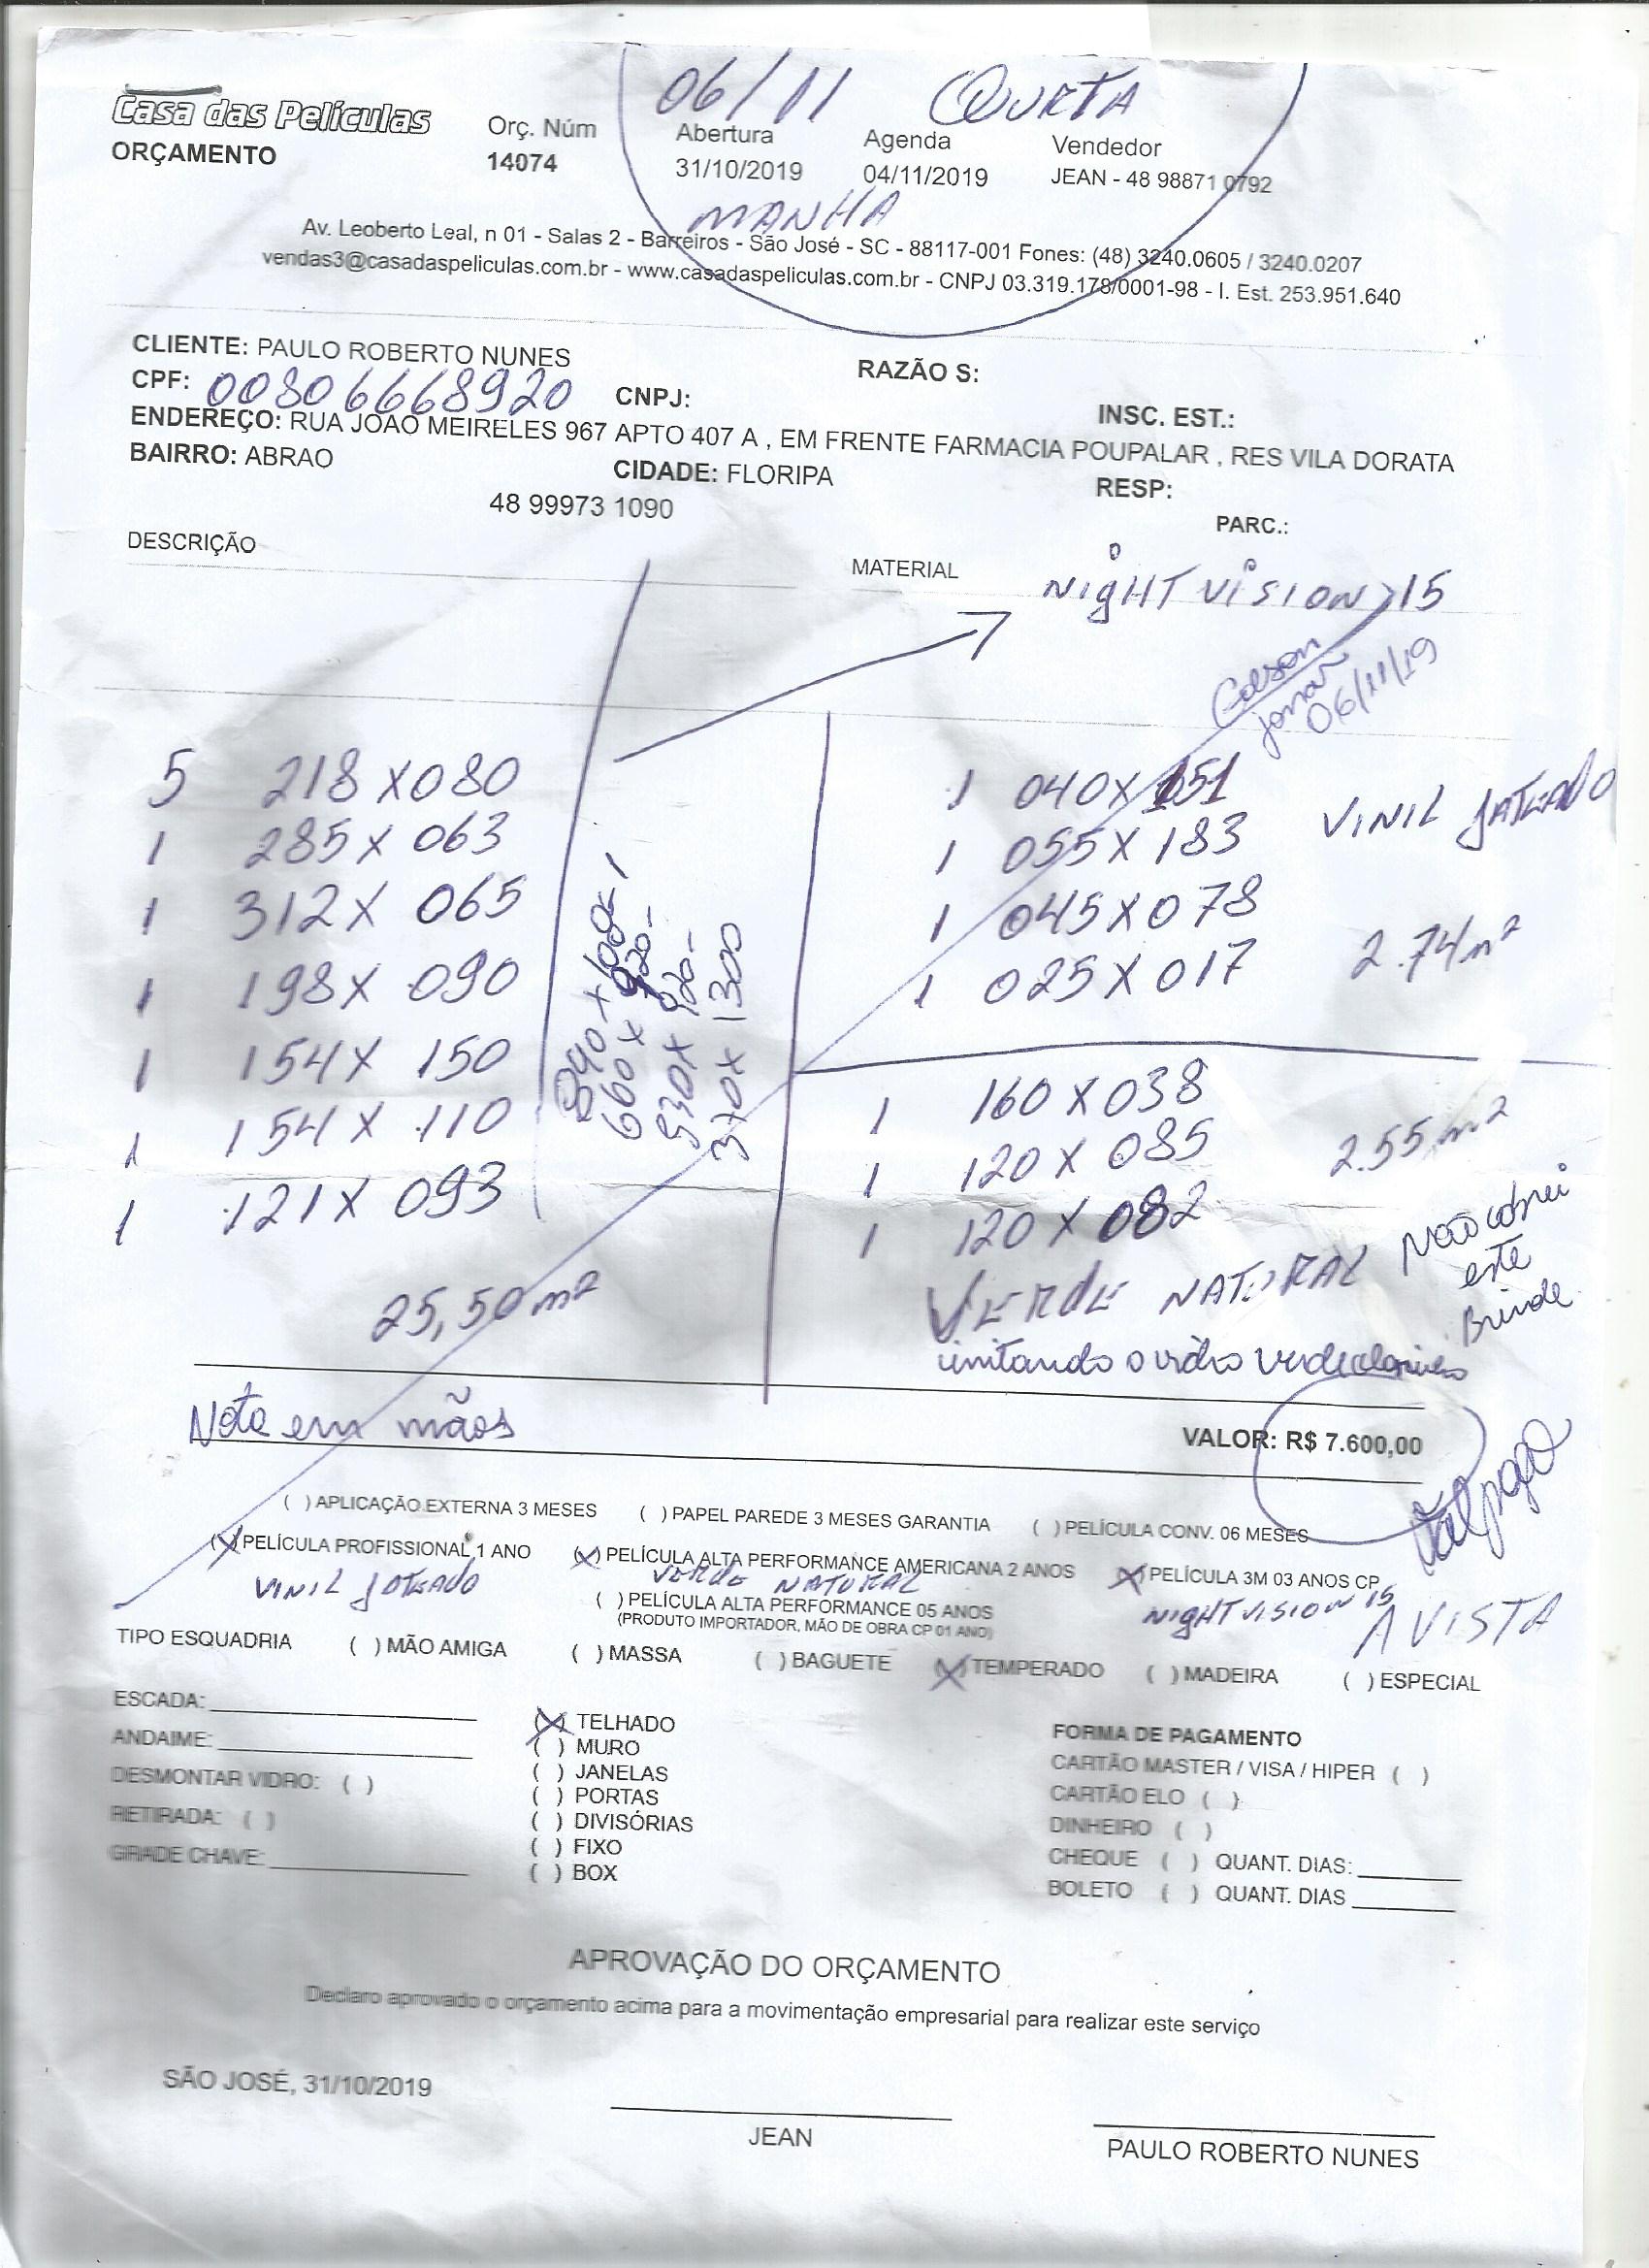 06/11 QURTA
Casa das Películas
ORÇAMENTO
Orç. Núm
14074
Abertura
31/10/2019
Agenda
04/11/2019
Vendedor
JEAN - 48 98871 0792
MANHA
Av. Leoberto Leal, n 01 - Salas 2 - Barreiros - São José - SC - 88117-001 Fones: (48) 3240.0605 / 3240.0207
vendas3@casadaspeliculas.com.br - www.casadaspeliculas.com.br - CNPJ 03.319.178/0001-98 - I. Est. 253.951.640
CLIENTE: PAULO ROBERTO NUNES
RAZÃO S:
CPF: 00806668920 CNPJ:
INSC. EST.:
ENDEREÇO: RUA JOAO MEIRELES 967 APTO 407 A , EM FRENTE FARMACIA POUPALAR , RES VILA DORATA
BAIRRO: ABRAO CIDADE: FLORIPA RESP:
48 99973 1090
PARC.:
DESCRIÇÃO
MATERIAL
NigHT ViSION 15
06/11/19
5 218 X 080
1 285 X 063
1 312 X 065
1 198 X 090
1 154 X 150
1 154 X 110
1 121 X 093
25,50 m²
660 X 920-
930 X 920-
370 X 1300
1 040 X 151
1 055 X 183
1 045 X 078
1 025 X 017
VINIL JATEADO
2.74 m²
1 160 X 038
1 120 X 085
1 120 X 082
2.55 m²
VERDE NATURAL
Não cobrei
este
Brinde
imitando o vidro verde
Nota em mãos
VALOR: R$ 7.600,00
( ) APLICAÇÃO EXTERNA 3 MESES ( ) PAPEL PAREDE 3 MESES GARANTIA ( ) PELÍCULA CONV. 06 MESES
(X) PELÍCULA PROFISSIONAL 1 ANO (X) PELÍCULA ALTA PERFORMANCE AMERICANA 2 ANOS (X) PELÍCULA 3M 03 ANOS CP
VINIL JATEADO VERDE NATURAL NigHT VISION 15
( ) PELÍCULA ALTA PERFORMANCE 05 ANOS
(PRODUTO IMPORTADOR, MÃO DE OBRA CP 01 ANO)
A VISTA
TIPO ESQUADRIA ( ) MÃO AMIGA ( ) MASSA ( ) BAGUETE (X) TEMPERADO ( ) MADEIRA ( ) ESPECIAL
ESCADA:
ANDAIME:
DESMONTAR VIDRO: ( )
RETIRADA: ( )
GRADE CHAVE:
(X) TELHADO
( ) MURO
( ) JANELAS
( ) PORTAS
( ) DIVISÓRIAS
( ) FIXO
( ) BOX
FORMA DE PAGAMENTO
CARTÃO MASTER / VISA / HIPER ( )
CARTÃO ELO ( )
DINHEIRO ( )
CHEQUE ( ) QUANT. DIAS:
BOLETO ( ) QUANT. DIAS
APROVAÇÃO DO ORÇAMENTO
Declaro aprovado o orçamento acima para a movimentação empresarial para realizar este serviço
SÃO JOSÉ, 31/10/2019
JEAN
PAULO ROBERTO NUNES